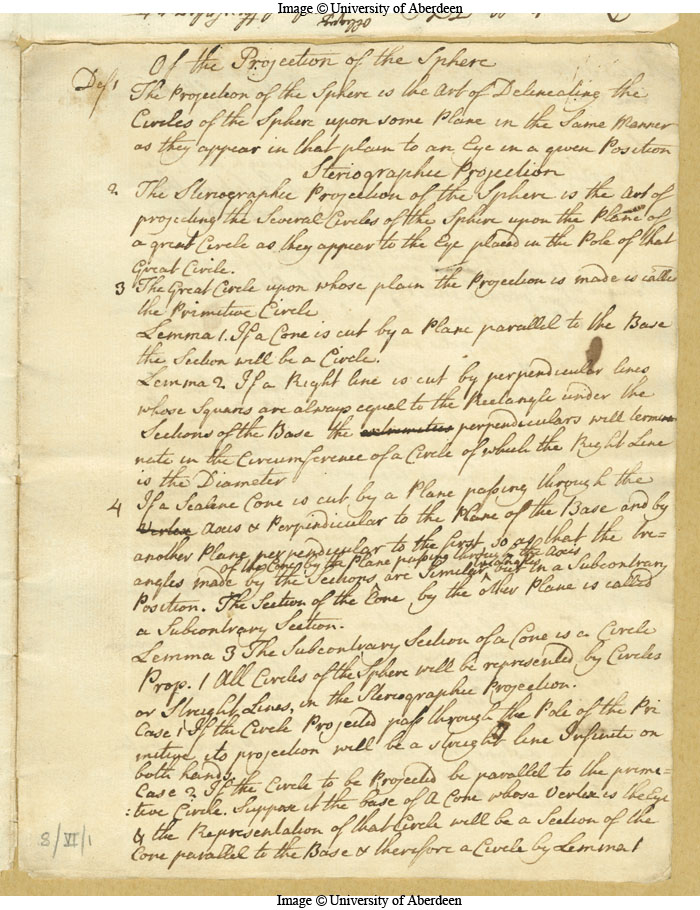 Image © University of Aberdeen
Of the Projection of the Sphere
Def 1 The Projection of the Sphere is the Art of Delineating the
Circles of the Sphere upon some Plane in the Same Manner
as they appear in that plain to an Eye in a given Position
Steriographic Projection
2 The Steriographic Projection of the Sphere is the Art of
projecting the Several Circles of the Sphere upon the Plane of
a great Circle as they appear to the Eye placed in the Pole of that
Great Circle.
3 The Great Circle upon whose plain the Projection is made is calle
the Primitive Circle
Lemma 1. If a Cone is cut by a Plane parallel to the Base
the Section will be a Circle.
Lemma 2. If a Right line is cut by perpendicular lines
whose Squars are always equal to the Rectangle under the
Sections of the Base the extremities perpendiculars will termi=
nate in the Circumference of a Circle of which the Right Line
is the Diameter
4 If a Scalene Cone is cut by a Plane passing through the
Vertex Axis & Perpendicular to the Plane of the Base and by
another Plane perpendicular to the first so as that the tri=
of the Cone by the Plane passing through the Axis
angles made by the Sections are Similar triangles but in a Subcontrary
Position. The Section of the Cone by the other Plane is called
a Subcontrary Section.
Lemma 3 The Subcontrary Section of a Cone is a Circle
Prop. 1 All Circles of the Sphere will be represented by Circles
or Streight Lines, in the Steriographic Projection.
Case 1 If the Circle Projected pass through the Pole of the Pri
mitive its projection will be a streight line Infinite on
both hands.
Case 2 If the Circle to be Projected be parallel to the prime=
:tive Circle. Suppose it the base of A Cone whose Vertex is the Eye
& the Representation of that Circle will be a Section of the
Cone parallel to the Base & therefore a Circle by Lemma 1
3/VI/1
Image © University of Aberdeen